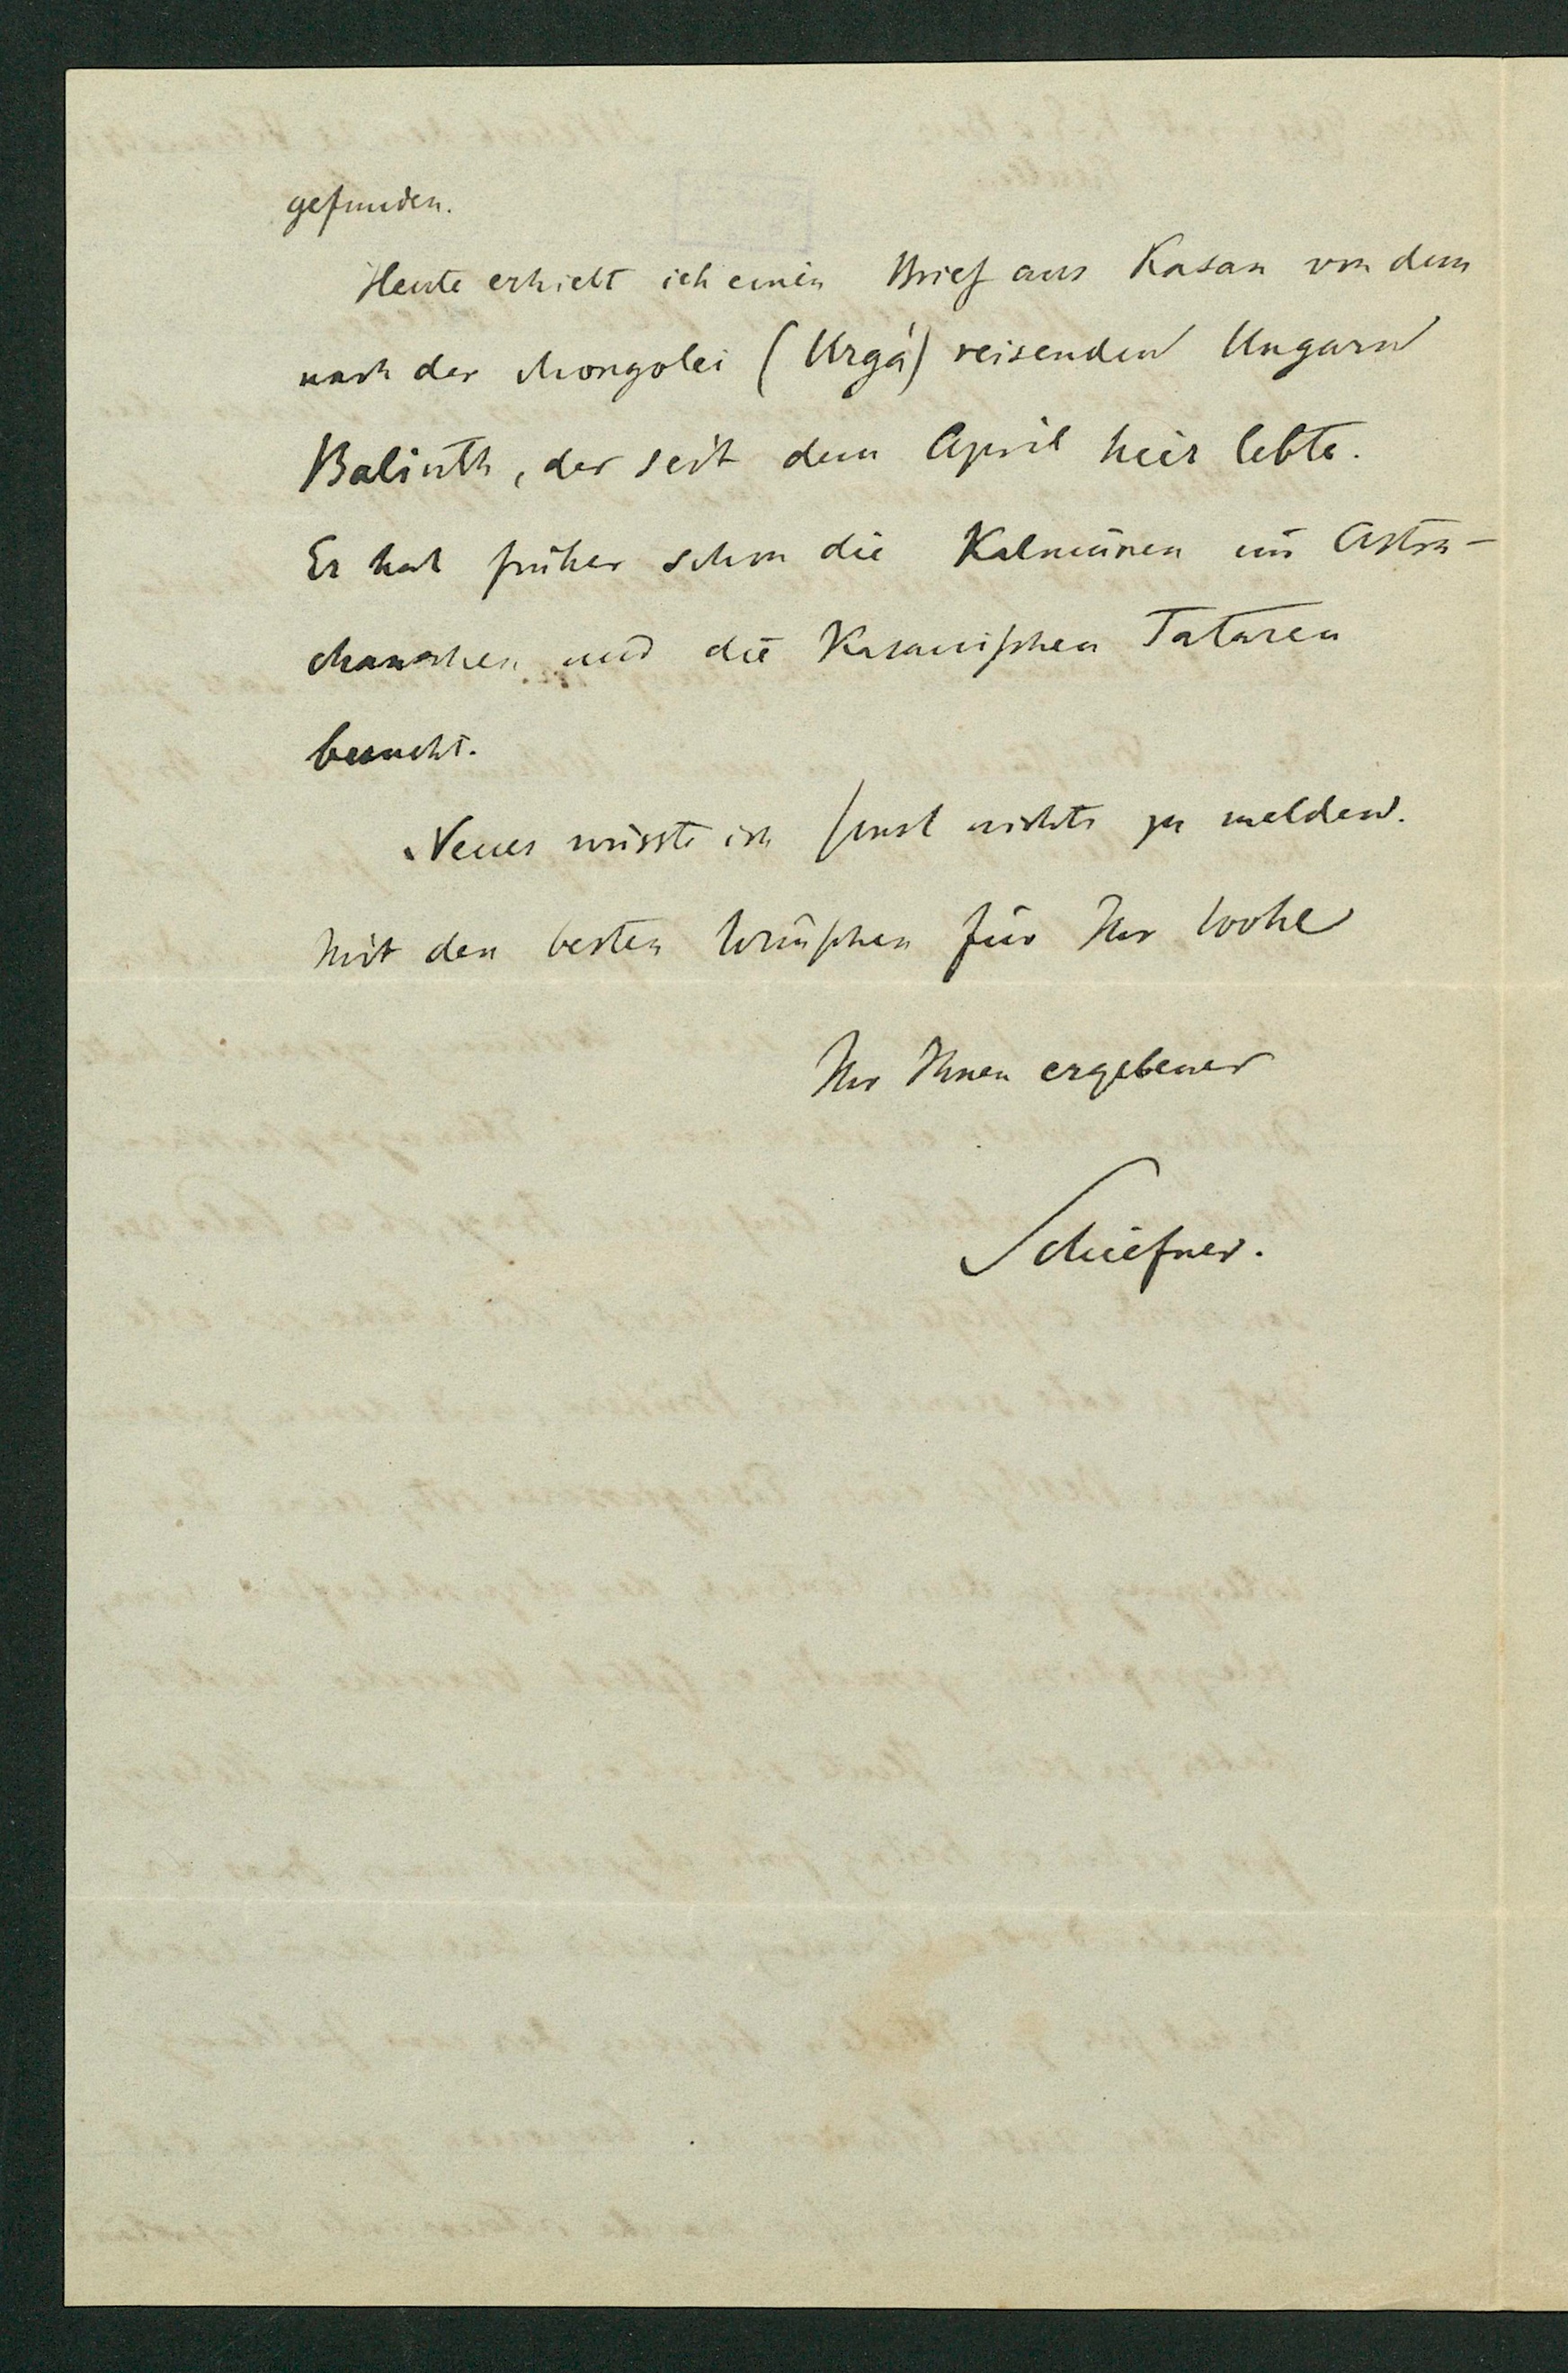 gefunden.
Heute erhielt ich einen Brief aus Kasan von dem
nach der Mongolei (Urgá) reisenden Ungarn
Balinth, der seit dem April hier lebte.
Er hat früher schon die Kalmüken im Astra-
chanschen und die Kasanischen Tataren
besucht.
Neues wüsste ich sonst nichts zu melden.
Mit den besten Wünschen für Ihr Wohl
Ihr Ihnen ergebener
Schiefner.